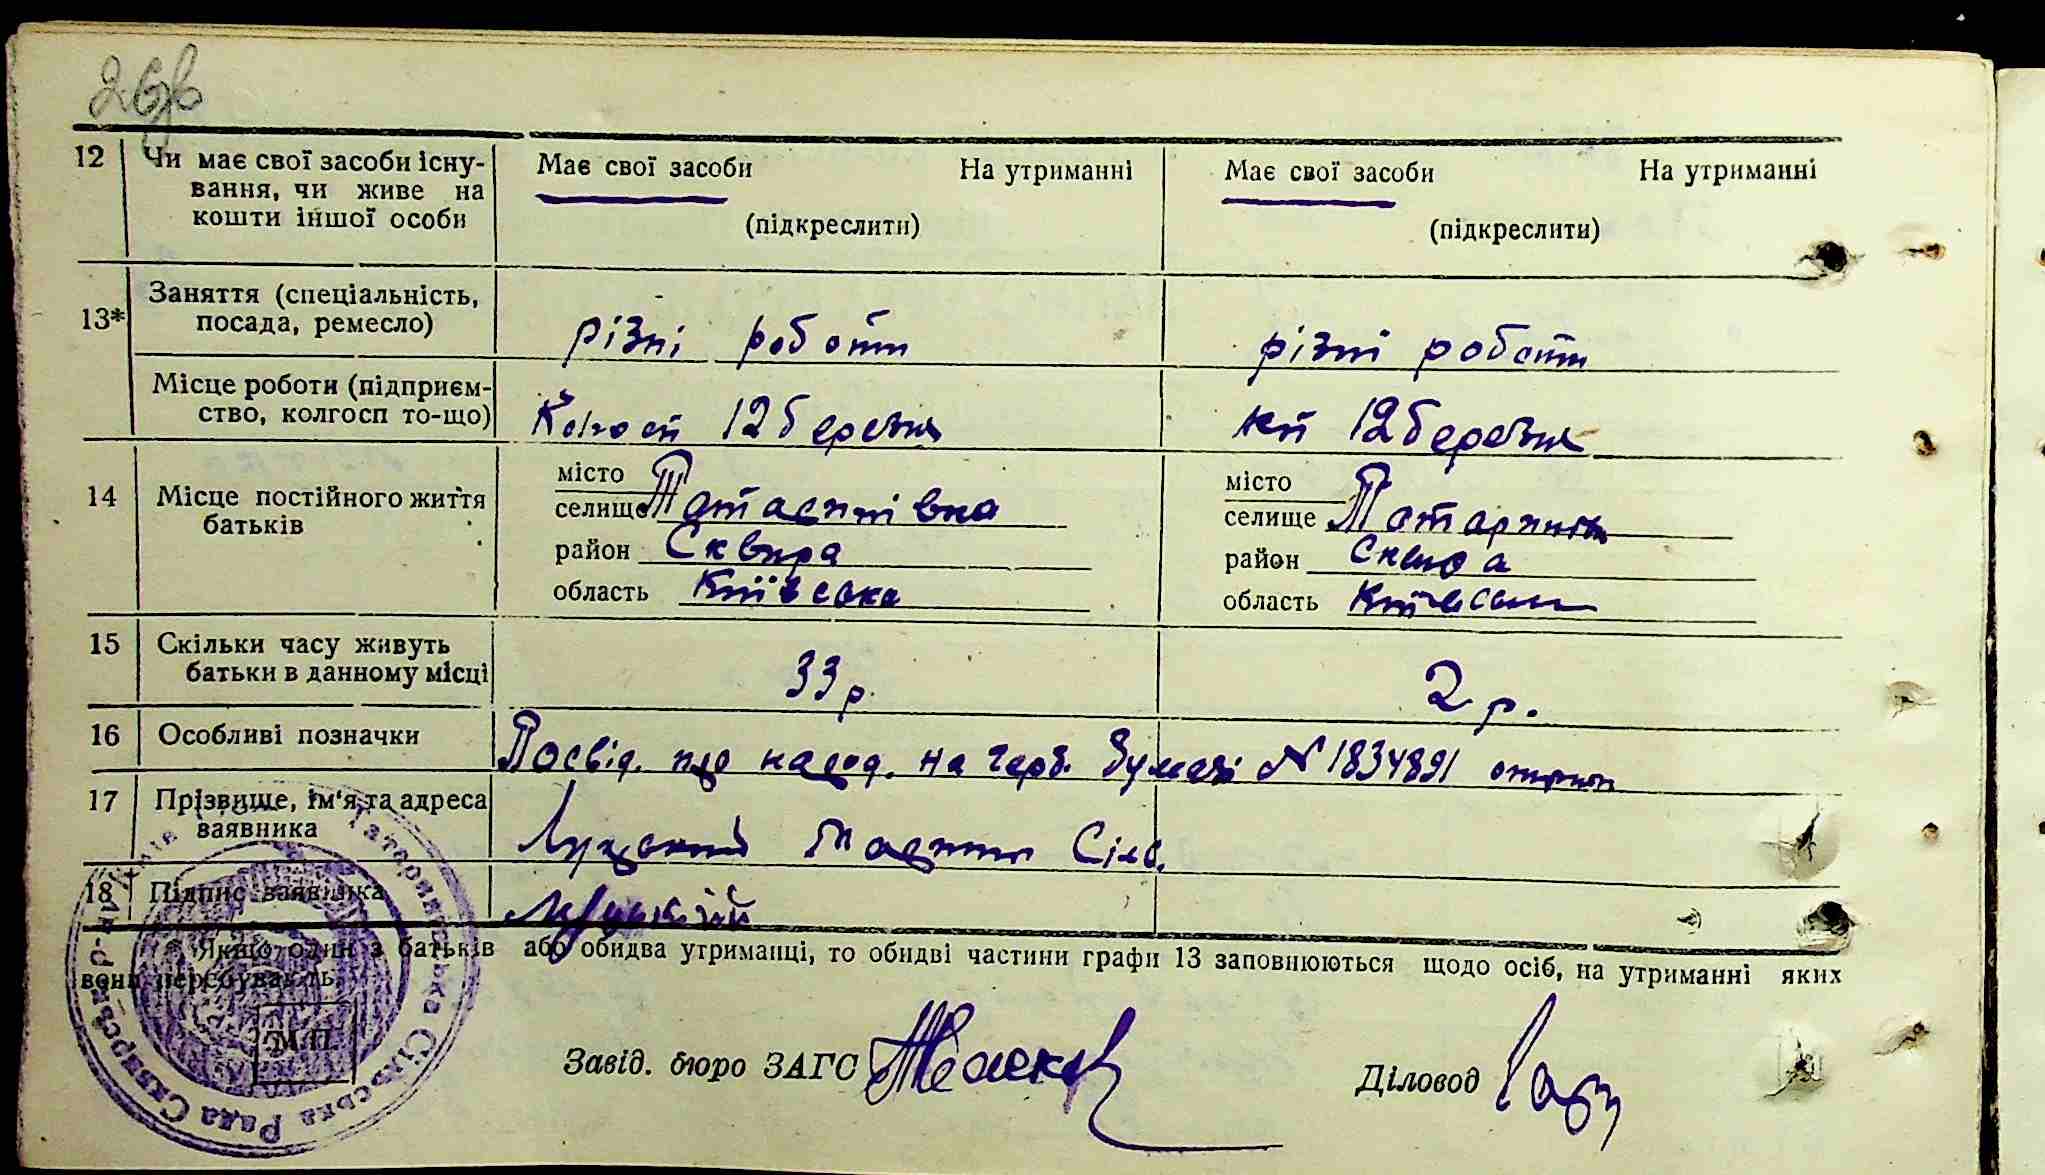 26зв
12 Чи має свої засоби існу-
вання, чи живе на
кошти іншої особи
Має свої засоби На утриманні
(підкреслити)
Має свої засоби На утриманні
(підкреслити)
13* Заняття (спеціальність,
посада, ремесло)
різні роботи
різні роботи
Місце роботи (підприєм-
ство, колгосп то-що)
Колгосп 12 березня
кп 12 березня
14 Місце постійного життя
батьків
місто
селище
район Сквира
область Київська
місто
селище
район Сквира
область Київська
15 Скільки часу живуть
батьки в данному місці
33 р.
2 р.
16 Особливі позначки
Посвід. про народ. на герб. бумазі № 1834891
17 Прізвище, ім'я та адреса
заявника
Луцький Мартин Сільв.
18 Підпис заявника
Луцький
* Якщо один з батьків або обидва утриманці, то обидві частини графи 13 заповнюються щодо осіб, на утриманні яких
вони перебувають.
М.П.
Завід. бюро ЗАГС
Діловод
Сільська Рада Сквирськ. Р-ну